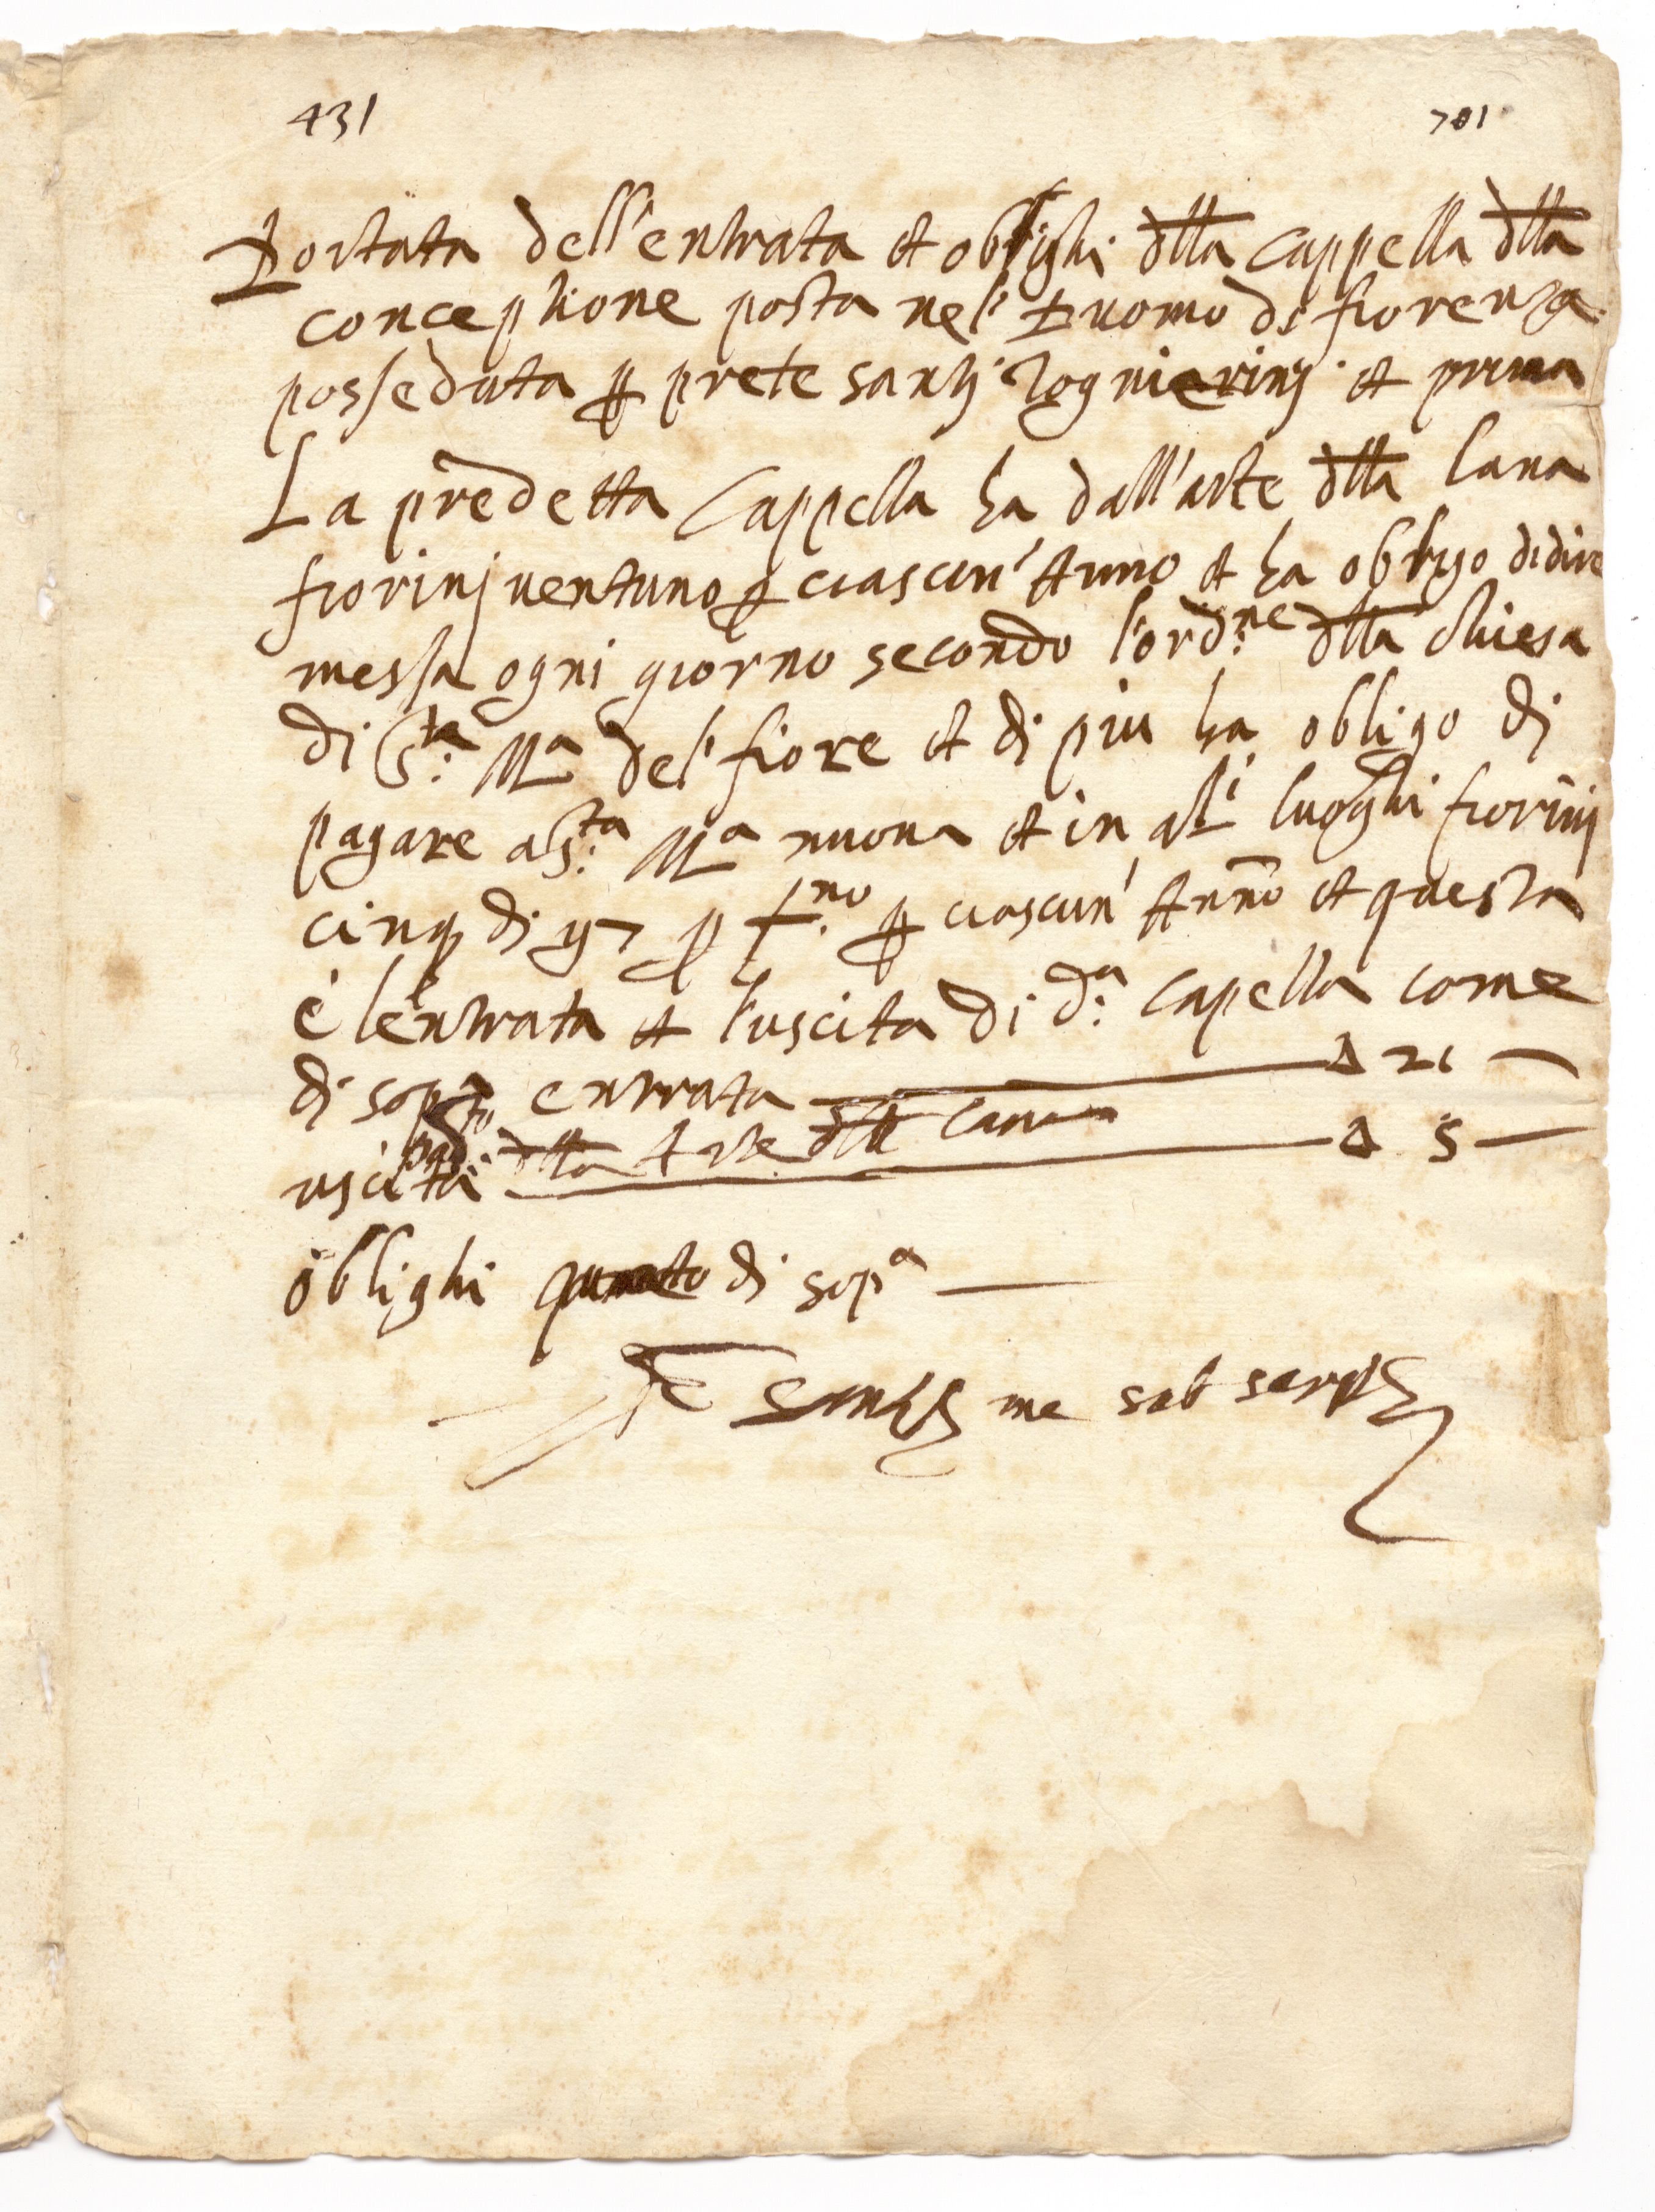 431 701
Portata dell'entrata et oblighi dlla cappella dlla
conceptione posta nel' Duomo di fiorenza
posseduta p prete santj et prima
La predetta Cappella ha dall'arte dlla lana
fiorinj ventuno p ciascun' Anno et ha obligo di dire
messa ogni giorno secondo l'ord.ne dlla chiesa
di S.ta Ma del' fiore et di piu ha obligo di
pagare a S.ta Ma nuova et in alti luoghi fiorinj
cinq di p p ciascun' Anno et questa
è l'entrata et l'uscita di d.a capella come
di sopa entrata 21
dlla Arte dlla Lana
uscita 5
oblighi di sopa
sants me sub